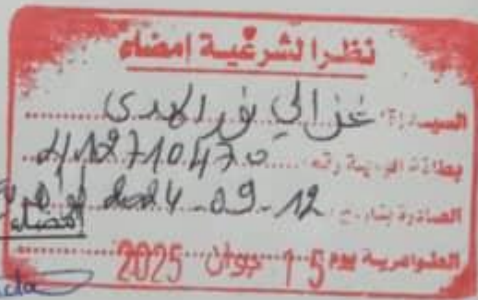 نظرا لشرعية امضاء
السيد(ة): غزالي نور الهدى
بطاقة الهوية رقم: 412710470
الصادرة بتاريخ: 12-09-2024
إمضاء
العوامرية يوم 15 جوان 2025